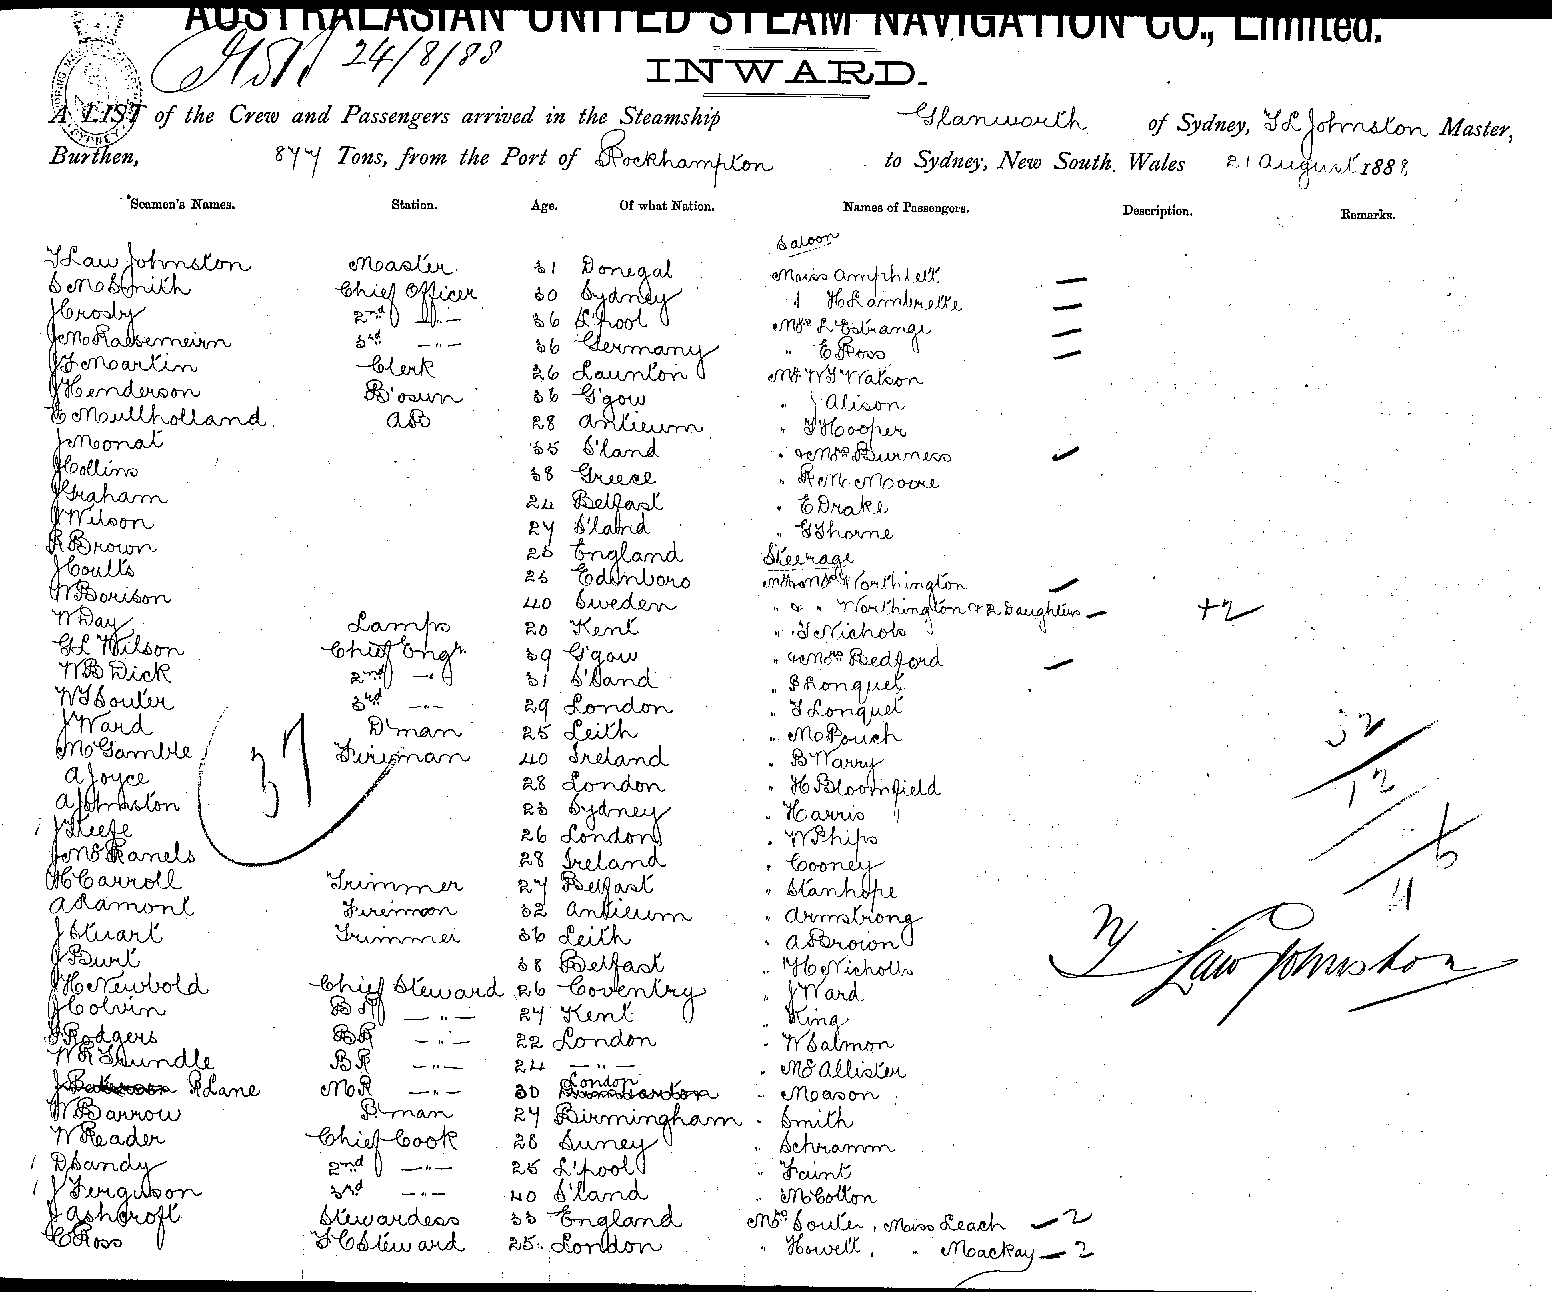 AUSTRALASIAN UNITED STEAM NAVIGATION CO., Limited.
24/8/88
INWARD.
A LIST of the Crew and Passengers arrived in the Steamship Glanworth of Sydney, T L Johnston Master,
Burthen, 877 Tons, from the Port of Rockhampton to Sydney, New South Wales 21 August 1888
Seamen's Names. Station. Age. Of what Nation. Names of Passengers. Description. Remarks.
Saloon
T Law Johnston Master 31 Donegal Miss Amphlett —
S McSmith Chief Officer 30 Sydney " H Lambrette —
J Crosby 2nd —"— 36 L'pool Mrs L'Estrange —
J M Rassemeirn 3rd —"— 36 Germany " E Ross —
J T Martin Clerk 26 Launton Mr W T Watson
J Henderson B'osun 36 G'gow " J Alison
E Mullholland AB 28 Antieum " T Hooper
J Monat 35 S'land " & Mrs Burness
J Collins 38 Greece " R M Moore
J Graham 24 Belfast " E Drake
J Wilson 27 S'land " G Thorne
R Brown 25 England Steerage
J Coutts 25 Edinboro Worthington
W Borison 40 Sweden " & " Worthington & 2 Daughters — +2
W Day Lamps 20 Kent " T Nichols
G L Wilson Chief Engr 39 G'gow " & Mrs Bedford —
W B Dick 2nd —"— 31 S'land " P Lonquet
W T Souter 3rd —"— 29 London " T Lonquet
J Ward D'man 25 Leith " M Pouch 32
McGamble Fireman 40 Ireland " B Warry
A Joyce 37 28 London " H Bloomfield 12
A Johnston 23 Sydney " Harris
J Keefe 26 London " W Phips
J McRanels 28 Ireland " Cooney 6
H Carroll Trimmer 27 Belfast " Stanhope 4
A Lamont Fireman 32 Antieum " Armstrong
J Stuart Trimmer 36 Leith " A Brown
J Burt 38 Belfast " H Nicholls T Law Johnston
J H Newbold Chief Steward 26 Coventry " J Ward
J Colvin BR —"— 27 Kent " King
G Rodgers BR —"— 22 London " W Salmon
W R Trundle BR —"— 24 —"— " McAllister
R Lane MR —"— 30 London " Mason
W Barrow P'man 27 Birmingham " Smith
W Reader Chief Cook 28 Surrey " Schramm
D Sandy 2nd —"— 25 L'pool " Faint
J Ferguson 3rd —"— 40 S'land " McColton
J Ashcroft Stewardess 33 England Mrs Souter, Miss Leach — 2
C Ross F C Steward 25 London " Howell, " Mackay — 2